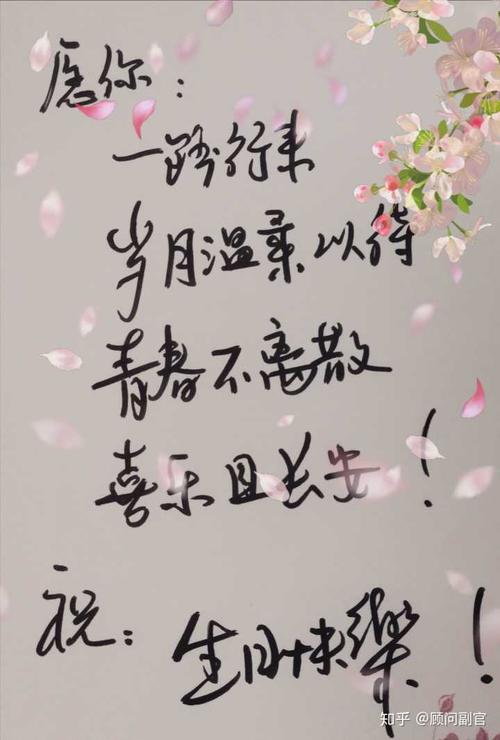 愿你：
一路行来
岁月温柔以待
青春不离散
喜乐且长安！
祝：生日快樂！
知乎 @顾问副官